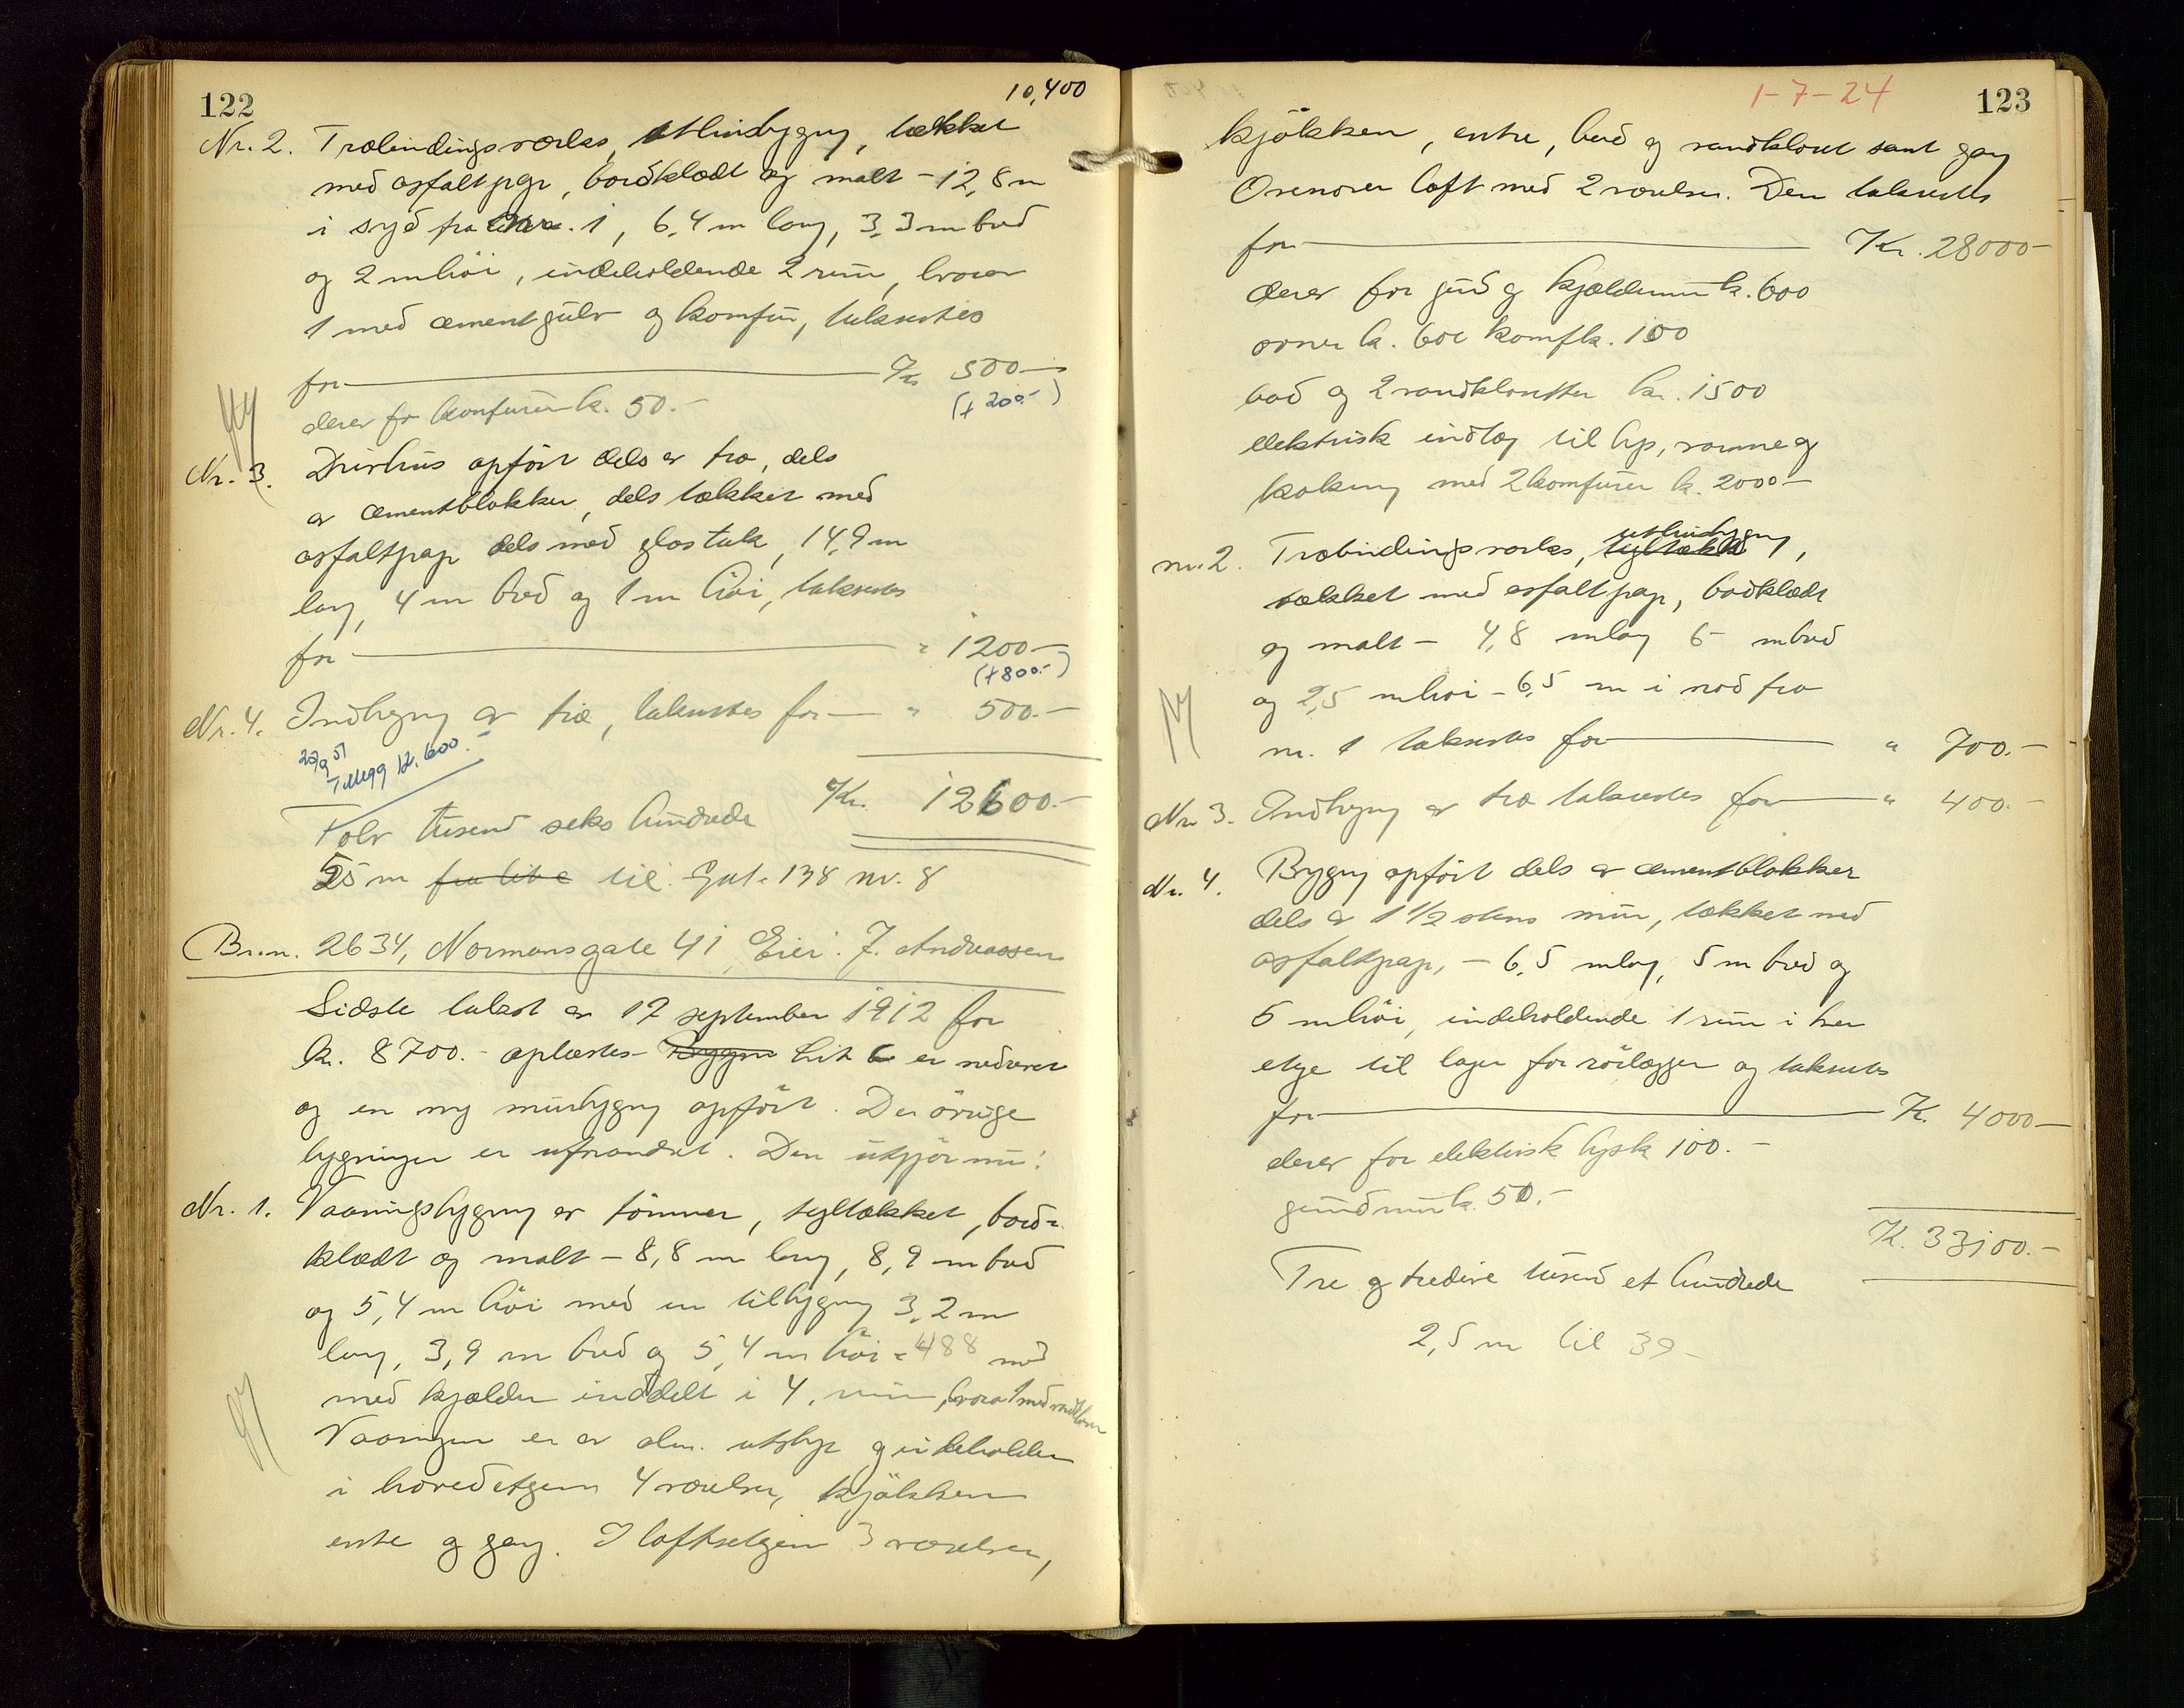 122
10,400
Nr. 2. Træbindingsverks, uthusbygng, tækket
med asfaltpap, bordklædt og malt - 12,8 m
i syd fra nr. 1, 6,4 m lang, 3,3 m bred
og 2 m høi, indeholdende 2 rum, hvorav
1 med cementgulv og komfur, taksertes
for — Kr. 500.-
(+ 200.-)
derav for komfuren k. 50.-
Nr. 3. Drivhus opført dels av træ, dels
av cementblokker, dels tækket med
asfaltpap dels med glastak, 14,9 m
lang, 4 m bred og 1 m høi, taksertes
for — " 1200.-
(+800.-)
Nr. 4. Indhegng av træ, taksertes for — " 500.-
Tillegg kr. 600.-
Kr. 12600.-
Tolv tusend seks hundrede
55 m fra til Gnt. 138 nr. 8
Br.n. 2634, Normansgate 41 Eier: J. Andreassen
Sidste takst av 17 september 1912 for
kr. 8700.- oplæstes - Bygn Lit C er nedrevet
og en ny murbygng opført. De øvrige
bygninger er uforandret. Den utgjør nu:
Nr. 1. Vaaningsbygng av tømmer, tegltækket, bord-
klædt og malt - 8,8 m lang, 8,9 m bred
og 5,4 m høi med en tilbygng 3,2 m
lang, 3,9 m bred og 5,4 m høi = 488 m3
med kjælder inddelt i 4 rum, hvorav 1 med vandkloset
Vaaningen er av alm. utstyr og indeholder
i hovedetagen 4 værelser, kjøkken
entre og gang. I loftsetagen 3 værelser,
1-7-24
123
kjøkken, entre, bad og vandkloset samt gang
Ovenover loft med 2 værelser. Den taksertes
for — Kr. 28000-
derav for grund og kjældermur k. 600
ovner k. 600 komf k. 100
bad og 2 vandklosetter kr. 1500
elektrisk indlæg til lys, varme og
koking med 2 komfurer k. 2000-
nr. 2. Træbindingsverks, tegltækket uthusbygng,
tækket med asfaltpap, bordklædt
og malt - 4,8 m lang 6 m bred
og 2,5 m høi - 6,5 m i nord fra
nr. 1 taksertes for — " 700.-
Nr. 3. Indhegng av træ taksertes for — " 400.-
Nr. 4. Bygng opført dels av cementblokker
dels av 1 1/2 stens mur, tækket med
asfaltpap, - 6,5 m lang, 5 m bred og
5 m høi, indeholdende 1 rum i hver
etage til lager for rørlægger og taksertes
for — K. 4000-
derav for elektrisk lys k 100.-
grundmur k. 50.-
K. 33100.-
Tre og tredive tusend et hundrede
2,5 m til 39-